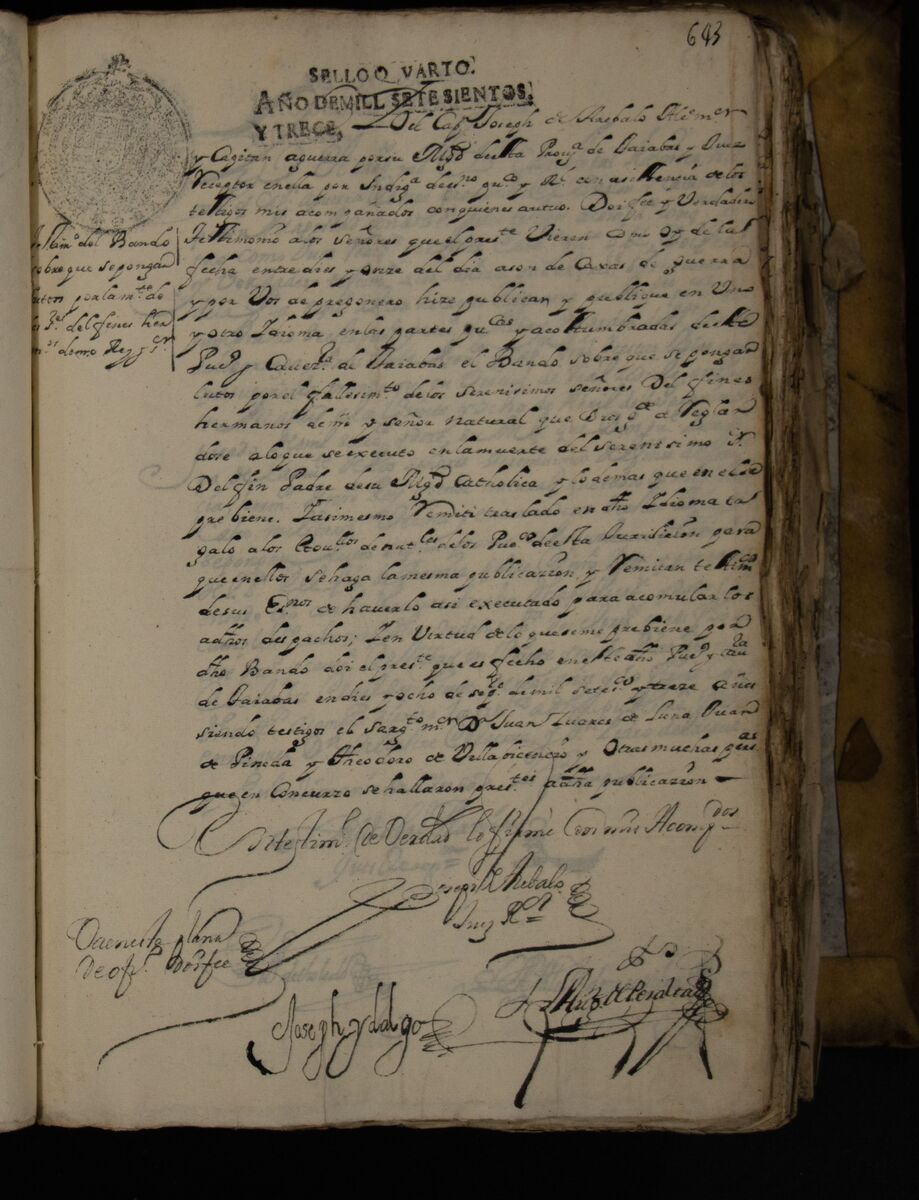 643
SELLO QVARTO.
AÑO DE MILL SETESIENTOS,
Y TRECE,
El Capn Joseph de Arebalo Theer
y Capitan aguerra por su Magd desta Prova de Taiabas y Juez
Reseptor en ella por Indiga de essno puco y Rl con asistencia de los
testigos mis acompañados con quienes actuo. Doi fee y Verdadero
testimonio a los señores que el preste Vieren Como oy de la
fecha entre dies y onze del dia a son de Caxas de guerra
y por Vos de pregonero hize publicar y publique en Uno
y otro Idioma en las partes pucas y acostumbradas deste
Puo y Cavera de Taiabas el Bando sobre que se pongan
lutos por el fallesimto de los serenisimos señores Delfines
hermanos de mi Rey y señor natural que Dios gde a Reglan
dose a lo que se executo en la muerte del serenisimo Sr
Delfin Padre de su Magd Catholica y lo demas que en el se
prebiene. Y asimesmo Remiti traslado en dho Idioma ta
galo a los Goullos de natles de los Puos desta Juridision para
que en ellos se haga la mesma publicazion, y Remitan testimos
de sus Esnos de haverlo asi executado para acomular los
a dhos despachos; Y en Virtud de lo que se me prebiene por
dho Bando doi el preste que es fecho en este dho Puo y Caura
de Taiabas en dies y ocho de sepe de mil setesos y treze años
siendo testigos el sargto mor Dn Juan Suares de Luna Juan
de Pineda y Theodoro de Villabicencio y Otras muchas psas
que en Concurzo se hallaron prestes a dha publicazion
En testimo de Verdad lo firme Con mis Acompdos
Joseph Arebalo
Juez Ror
testimo del Bando
sobre que se pongan
lutos por la mte de
los Ses delfines her
mos de mo Rey y sr
Va en esta plana
de ofo Doi fee
Joseph ydalgo
de Peralta